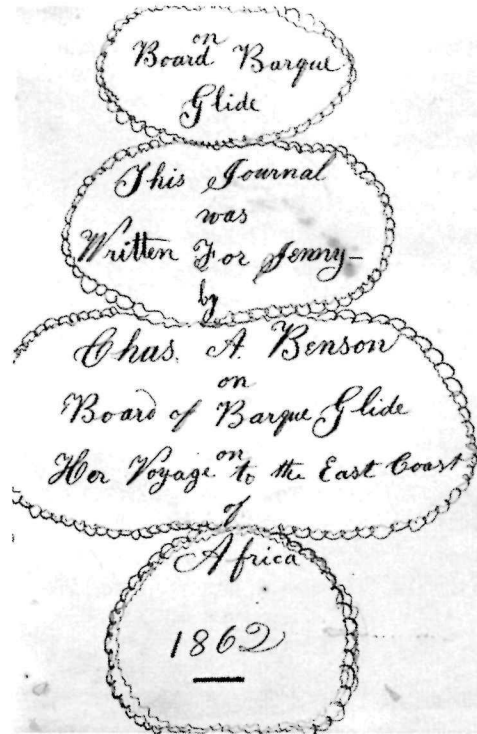 on
Board Barque
Glide
This Journal
was
Written For Jenny-
by
Chas. A. Benson
on
Board of Barque Glide
on
Her Voyage to the East Coast
of
Africa
1862